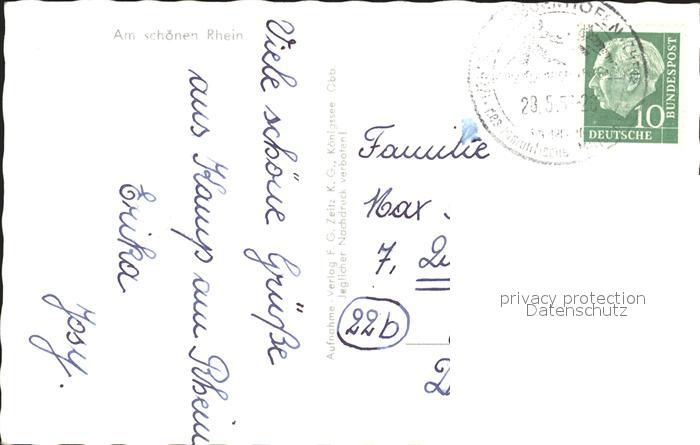 Am schönen Rhein
Viele schöne Grüße
aus Kamp am Rhein
Erika
Josy.
Aufnahme - Verlag F. G. Zeitz K. G., Königssee Obb.
Jeglicher Nachdruck verboten!
23.5.5
10
BUNDESPOST
DEUTSCHE
Familie
Max
7,
22b
privacy protection
Datenschutz